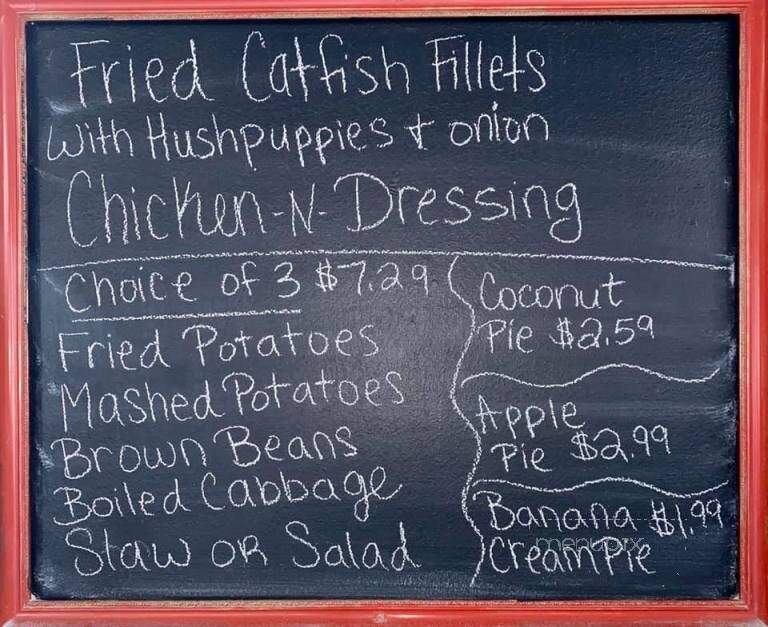 Fried Catfish Fillets
with Hushpuppies & onion
Chicken-N-Dressing
Choice of 3 $7.29
Fried Potatoes
Mashed Potatoes
Brown Beans
Boiled Cabbage
Slaw OR Salad
Coconut
Pie $2.59
Apple
Pie $2.99
Banana $1.99
Cream Pie
menupix